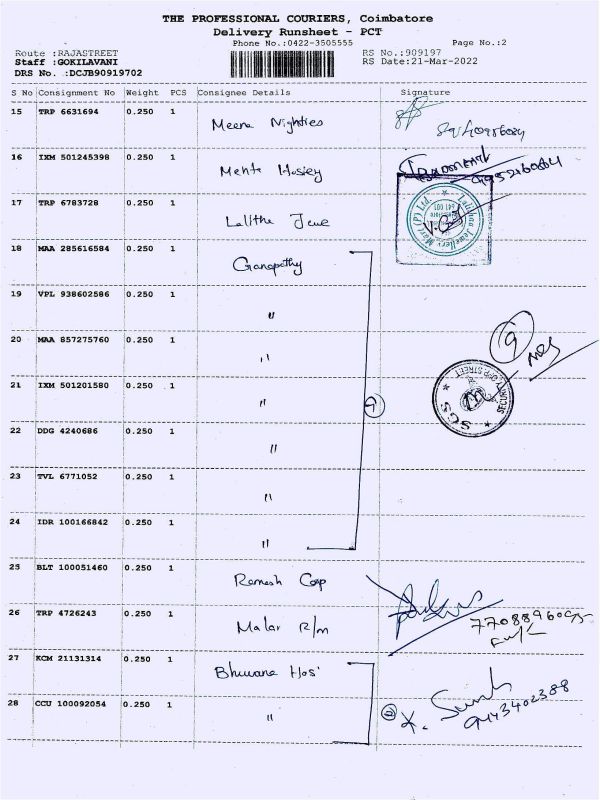 THE PROFESSIONAL COURIERS, Coimbatore
Delivery Runsheet - PCT
Phone No.:0422-3505555 Page No.:2
Route :RAJASTREET RS No.:909197
Staff :GOKILAVANI RS Date:21-Mar-2022
DRS No. :DCJB90919702
S No Consignment No Weight PCS Consignee Details Signature
15 TRP 6631694 0.250 1 Meena Nighties
16 IXM 501245398 0.250 1 Mehta Hosiey
17 TRP 6783728 0.250 1 Lalitha Jewe
18 MAA 285616584 0.250 1 Ganapathy
19 VPL 938602586 0.250 1 "
20 MAA 857275760 0.250 1 "
21 IXM 501201580 0.250 1 "
SECURITY OPP STREET
SGS
22 DDG 4240686 0.250 1 "
23 TVL 6771052 0.250 1 "
24 IDR 100166842 0.250 1 "
25 BLT 100051460 0.250 1 Ramesh Corp
26 TRP 4726243 0.250 1 Malar R/m
27 KCM 21131314 0.250 1 Bhuvana Hos'
28 CCU 100092054 0.250 1 " 9443402388